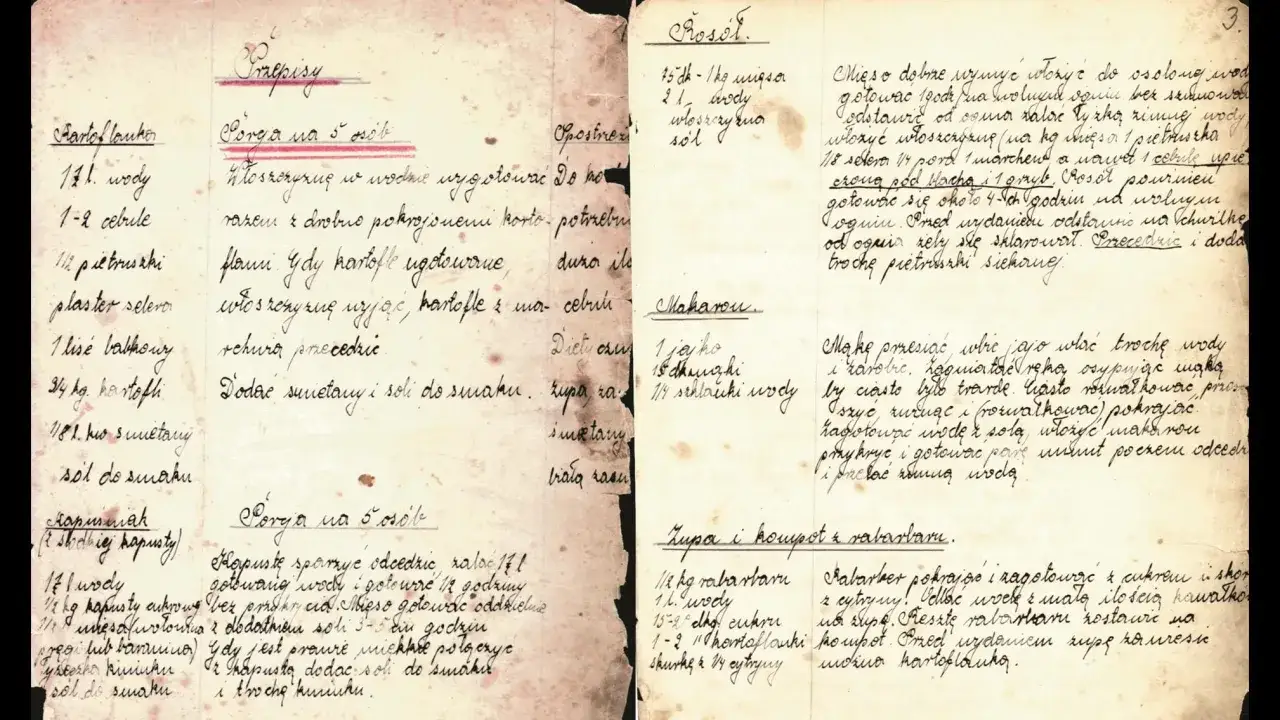 Przepisy
Kartoflanka
Porja na 5 osób
Spostrze
1½ l. wody
1-2 cebule
1/2 pietruszki
plaster selera
1 liść bobkowy
3/4 kg. kartofli
1/8 l. kw śmietany
sól do smaku
Włoszczyznę w wodzie wygotować
razem z drobno pokrojonemi karto-
flami. Gdy kartofle ugotowane,
włoszczyznę wyjąć, kartofle z ma-
rchwią przecedzić.
Dodać śmietany i soli do smaku.
Do
potrzebn
duża ilo
cebuli
Diety czu
zupa, za-
śmietany
białą zasm
Kapuśniak
(z słodkiej kapusty)
Porja na 5 osób
1½ l wody
1/2 kg kapusty cukrowej
1/4 " mięsa (wołowina
pręgi lub baranina)
łyżeczka kminku
sól do smaku
Kapustę sparzyć odcedzić, zalać 1½ l
gotowanej wody i gotować 1/2 godziny
bez przykrycia. Mięso gotować oddzielnie
z dodatkiem soli godzin
Gdy jest prawie miękkie połączyć
z kapustą dodać soli do smaku
i trochę kminku.
3.
Rosół.
75 dk - 1 kg mięsa
2 l. wody
włoszczyzna
sól
Mięso dobrze wymyć włożyć do osolonej wod
gotować 1 godz na wolnym ogniu bez szumowa
odstawić od ognia zalać łyżką zimnej wody,
włożyć włoszczyznę (na kg mięsa 1 pietruszka
1/8 selera 1/4 pora 1 marchew, a nawet 1 cebulę upie
czoną pod blachą i 1 grzyb. Rosół powinien
gotować się około 4-ch godzin na wolnym
ogniu. Przed wydaniem odstawić na chwilkę
od ognia żeby się sklarował. Przecedzić i doda
trochę pietruszki siekanej.
Makaron.
1 jajko
15 dk mąki
1/4 szklanki wody
Mąkę przesiać, wbić jajo wlać trochę wody
i zarobić. Zagniatać ręką osypując mąką
by ciasto było twarde. Ciasto rozwałkować, przesu
szyć, zwinąć i (rozwałkować) pokrajać.
Zagotować wodę z solą, włożyć makaron
przykryć i gotować parę minut poczem odcedzi
i przelać zimną wodą.
Zupa i kompot z rabarbaru.
1/2 kg rabarbaru
1 l. wody
15-2 dkg. cukru
1-2 " kartoflanki
skurkę z 1/4 cytryny
Rabarber pokrajać i zagotować z cukrem i skor
z cytryny. Odlać wodę z małą ilością kawałkó
na zupę. Resztę rabarbaru zostawić na
kompot. Przed wydaniem zupę zawiesić
można kartoflanką.